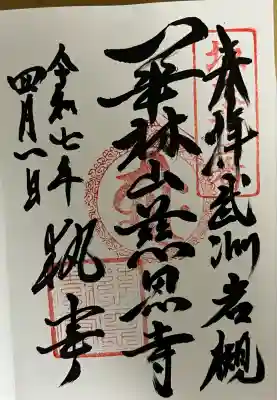 奉拝 武州岩槻
華林山慈恩寺
執事
令和七年
四月八日